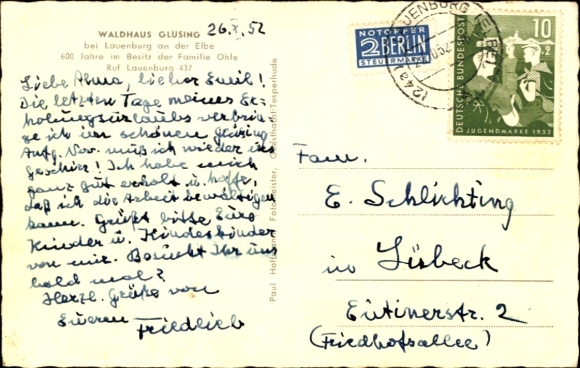 WALDHAUS GLÜSING
bei Lauenburg an der Elbe
600 Jahre im Besitz der Familie Ohle
Ruf Lauenburg 437
26.X.52
Liebe Alma, lieber Emil!
Die letzten Tage meines Er-
holungsurlaubs verbrin-
ge ich im schönen Glüsing.
Anfg. Nov. muß ich wieder ins
Geschirr! Ich habe mich
ganz gut erholt u. hoffe,
daß ich die Arbeit bewältigen
kann. Grüßt bitte Eure
Kinder u. Kindeskinder
von mir. Besucht Ihr uns
bald mal?
Herzl. Grüße von
Eurem Friedlieb
Paul Tesperhude
NOTOPFER
2 BERLIN
STEUERMARKE
LAUENBURG (ELBE)
DEUTSCHE BUNDESPOST
10
+2
JUGENDMARKE 1952
Fam.
E. Schlichting
in Lübeck
Eutinerstr. 2
(Friedhofsallee)